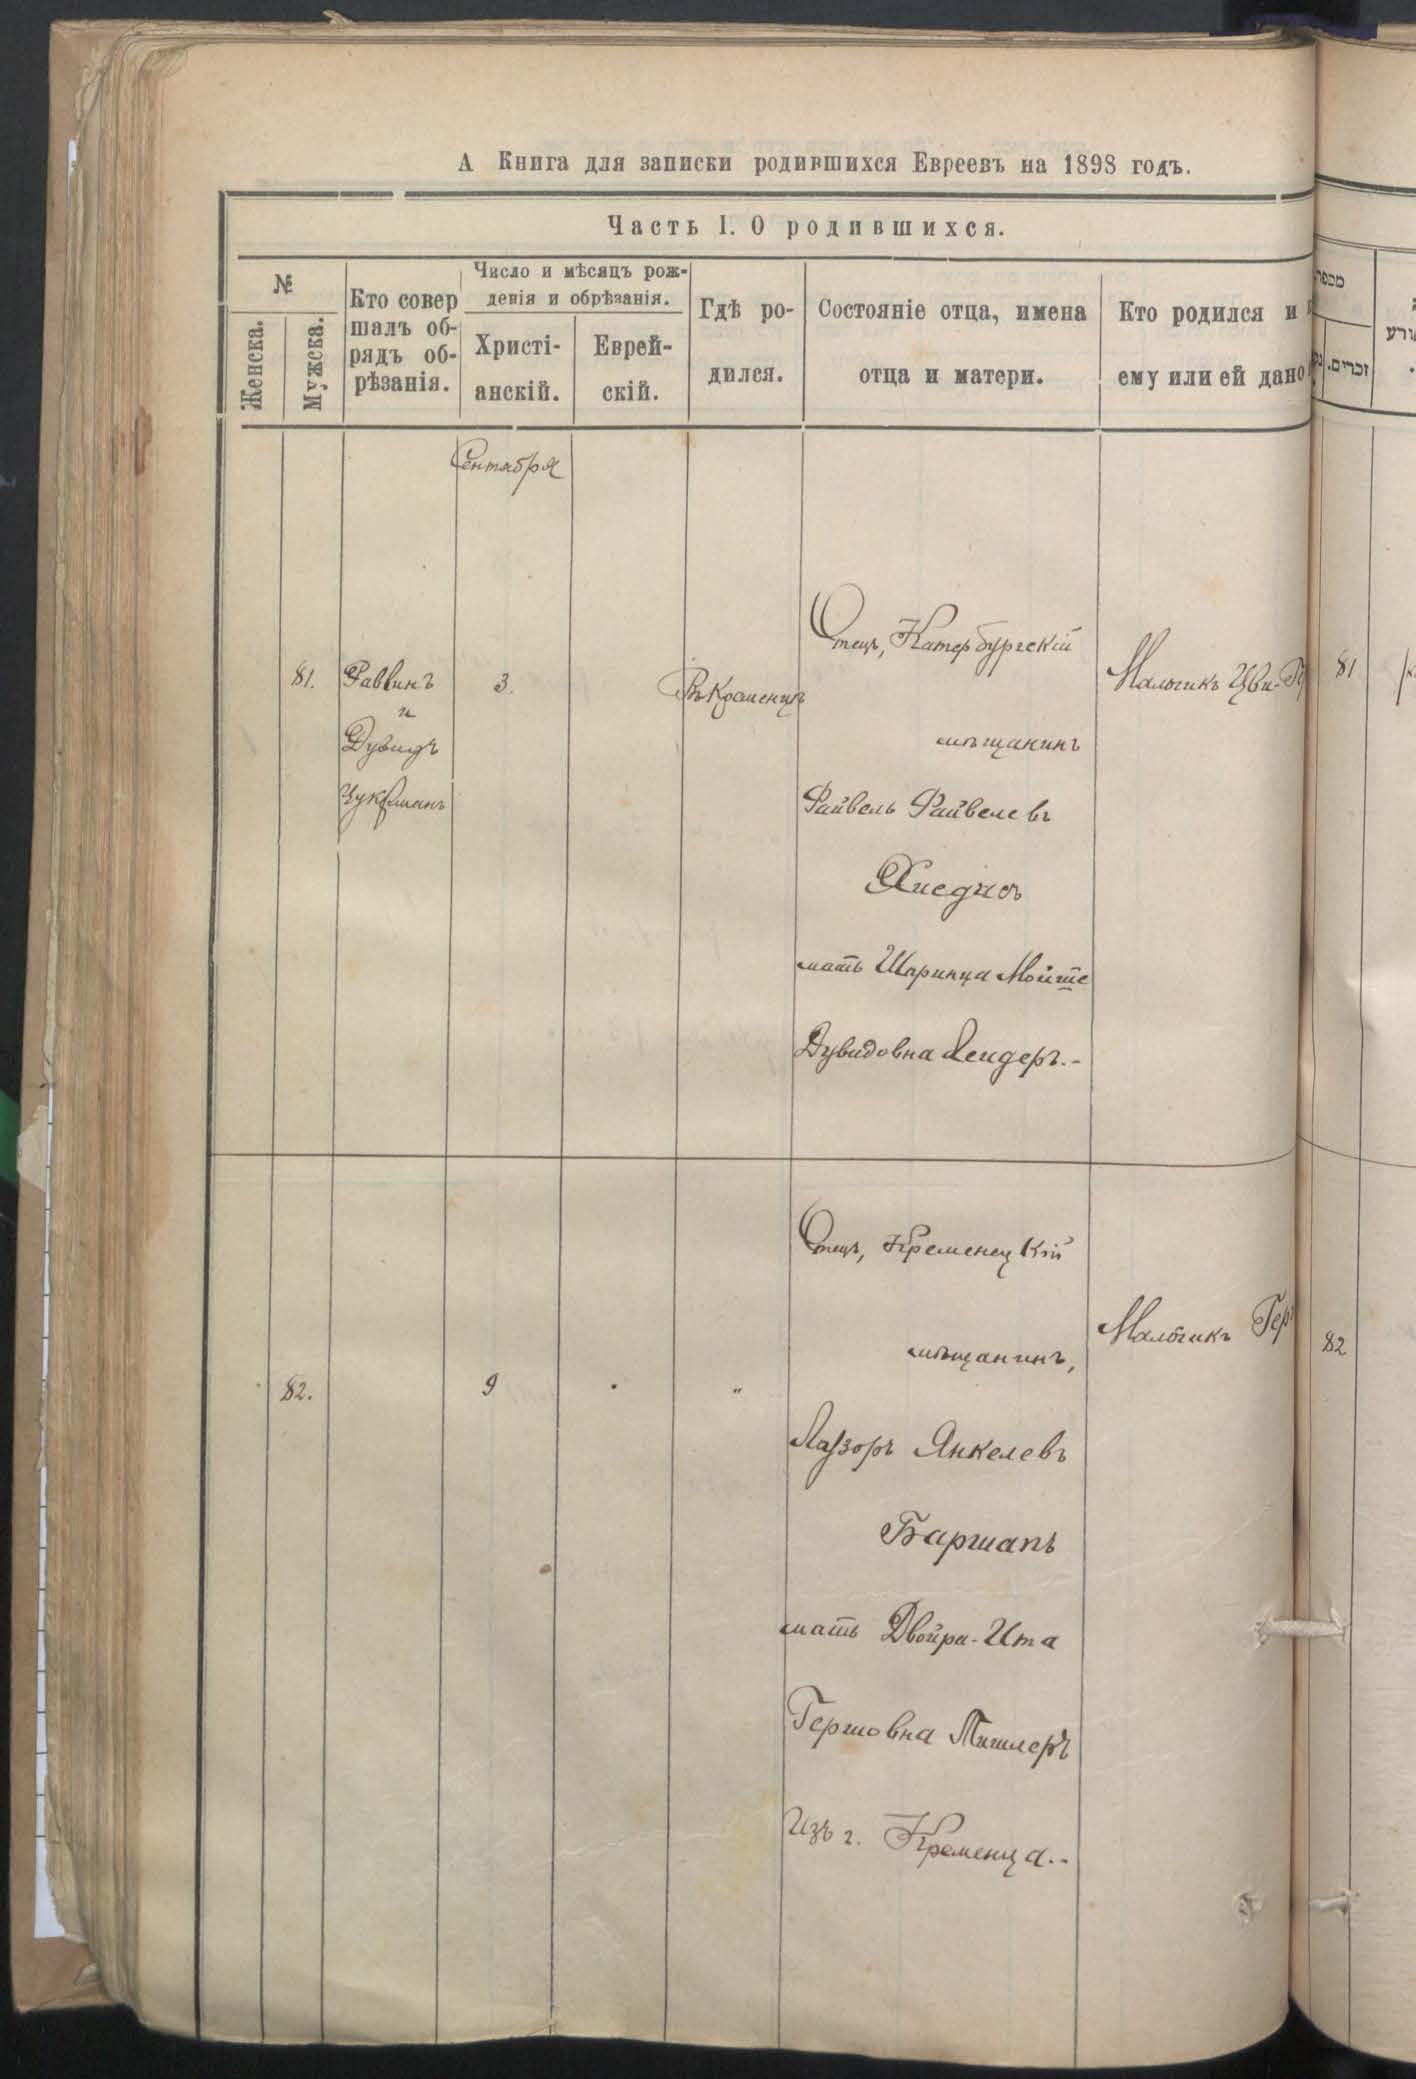 А Книга для записки родившихся Евреевъ на 1898 годъ.
Часть I. О родившихся.
№
Женска.
Мужска.
Кто совер
шалъ об-
рядъ об-
рѣзанія.
Число и мѣсяцъ рож-
денія и обрѣзанія.
Христі-
анскій.
Еврей-
скій.
Гдѣ ро-
дился.
Состояніе отца, имена
отца и матери.
Кто родился и
ему или ей дано
מספר
זכרים.
Сентября
81.
Раввинъ
и
Дувидъ
Цукерманъ
3.
Въ Кременцѣ
Отецъ, Катербургскій
мѣщанинъ
Файвель Файвелевъ
мать Шпринца Мойше
Дувидовна
Мальчикъ Цви-Ге
81
82.
9
"
Отецъ, Кременецкій
мѣщанинъ,
Лаузоръ Янкелевъ
Баршапъ
мать Двойра-Ита
Гершовна
Изъ г. Кременца.-
Мальчикъ Гер
82